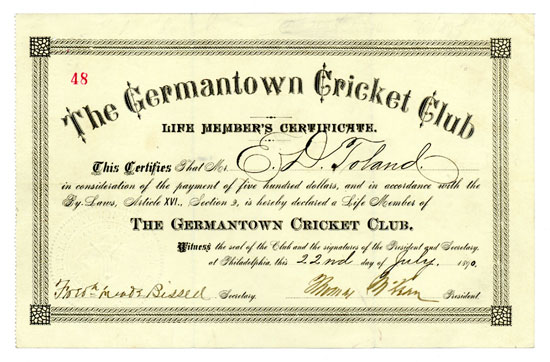 48
The Germantown Cricket Club
LIFE MEMBER'S CERTIFICATE.
This Certifies That Mr. E. D. Toland
in consideration of the payment of five hundred dollars, and in accordance with the
By-Laws, Article XVI., Section 2, is hereby declared a Life Member of
THE GERMANTOWN CRICKET CLUB.
Witness the seal of the Club and the signatures of the President and Secretary.
at Philadelphia, this 22nd day of July. 1890.
Bissell Secretary. Thomas President